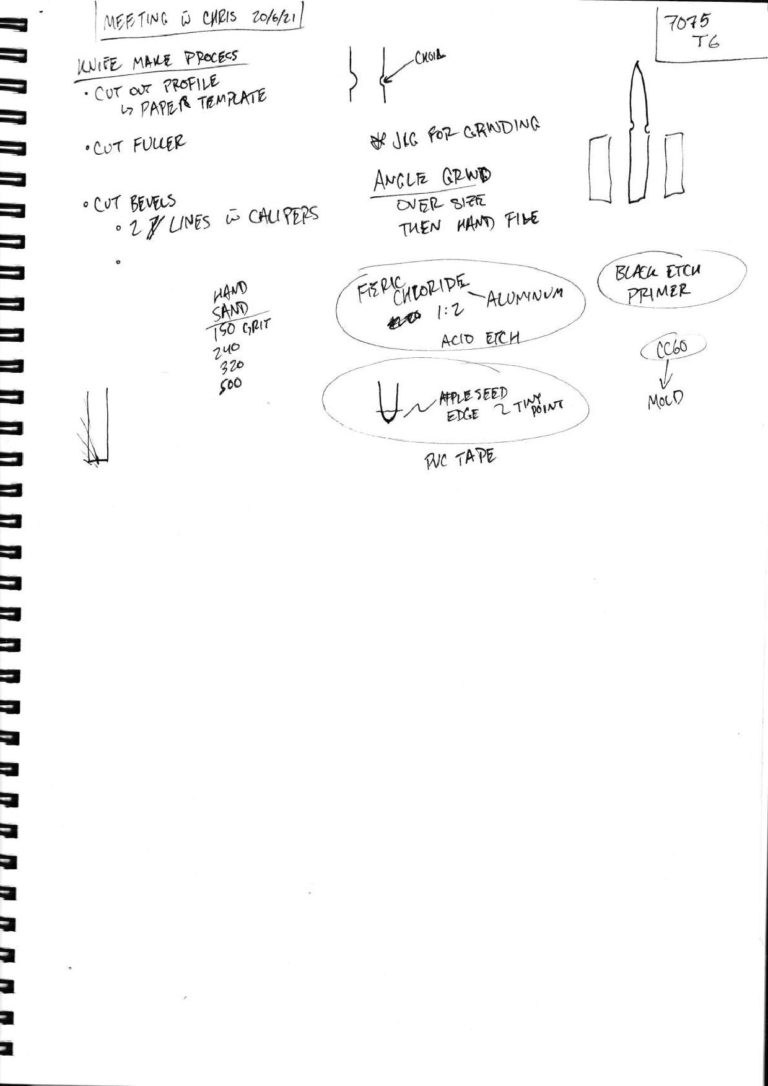 MEETING w̄ CHRIS 20/6/21
7075
T6
KNIFE MAKE PROCESS
• CUT OUT PROFILE
↳ PAPER TEMPLATE
• CUT FULLER
• CUT BEVELS
• 2 LINES w̄ CALIPERS
•
CHOIL
* JIG FOR GRINDING
ANGLE GRIND
OVER SIZE
THEN HAND FILE
HAND
SAND
150 GRIT
240
320
500
FERIC
CHLORIDE
ALUMINUM
1:2
ACID ETCH
APPLESEED
EDGE
TINY
POINT
PVC TAPE
BLACK ETCH
PRIMER
CC60
MOLD